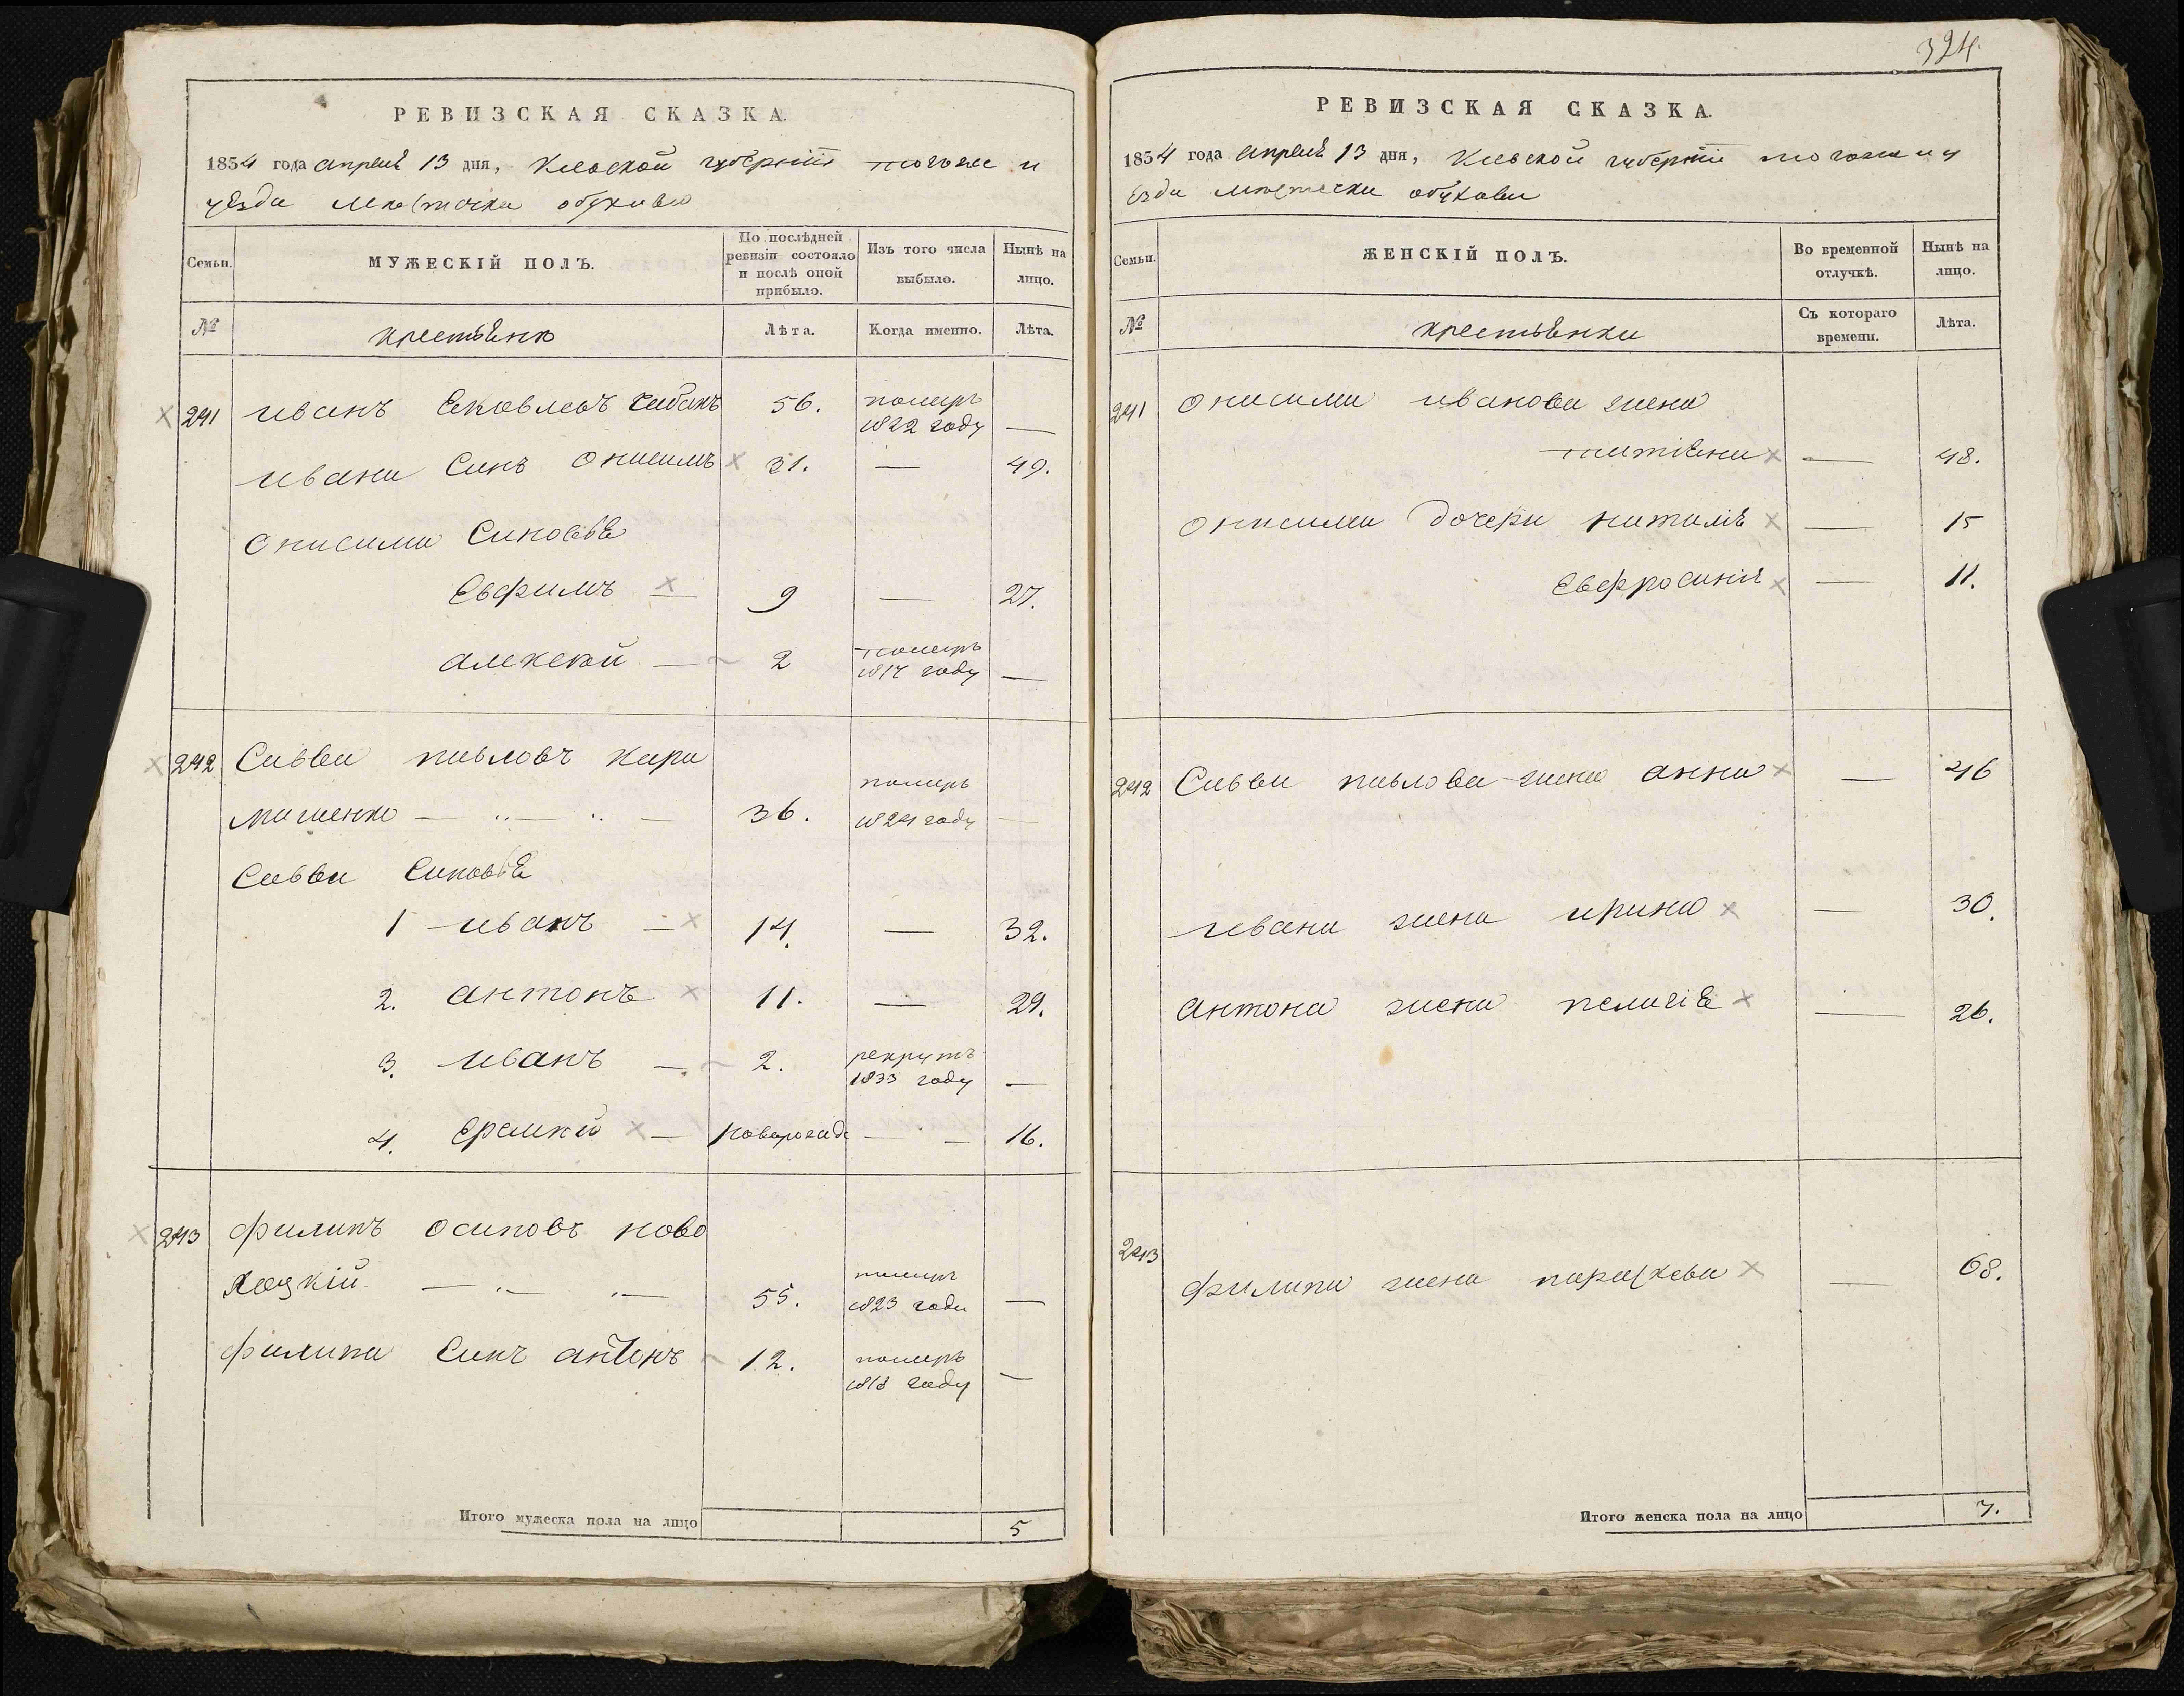 РЕВИЗСКАЯ СКАЗКА.
1854 года апреля 13 дня, Киевской губернии того же и
уезда местечка обухова
Семьи.
МУЖЕСКІЙ ПОЛЪ.
По послѣдней ревизіи состояло и послѣ оной прибыло.
Изъ того числа выбыло.
Нынѣ на лицо.
№
крестьяне
Лѣта.
Когда именно.
Лѣта.
241 иванъ яковлевъ 56. померъ 1822 году —
ивана синъ онисимъ 31. — 49.
онисима синовья
Евфимъ — 9 — 27.
алексей — 2 померъ году —
242 Савва павловъ кара
машенко — 36. померъ 1824 году —
Саввы синовья
1 иванъ — 14. — 32.
2. антонъ 11. — 29.
3. иванъ — 2. рекрутъ 1833 году —
4. еремей — — — 16.
243 филипъ осиповъ ново
— 55. померъ 1823 года —
филипа синъ антонъ 12. померъ 1818 году —
Итого мужеска пола на лицо 5
324.
РЕВИЗСКАЯ СКАЗКА.
1854 года апреля 13 дня, Киевской губернии того же и у
езда местечка обухова
Семьи.
ЖЕНСКІЙ ПОЛЪ.
Во временной отлучкѣ.
Нынѣ на лицо.
№
крестьянки
Съ котораго времени.
Лѣта.
241 онисима иванова жена
татіяна — 48.
онисима дочери наталія — 15
Евфросинія — 11.
242 Саввы павлова жена анна — 46
ивана жена ирина — 30.
антона жена пелагія — 26.
243
филипа жена параскева — 68.
Итого женска пола на лицо 7.